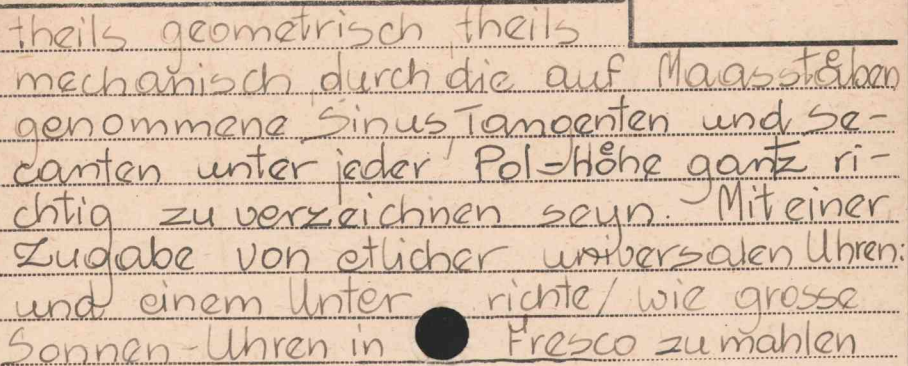 theils geometrisch theils
mechanisch durch die auf Maasståben
genommene Sinus, Tangenten und Se-
canten unter jeder Pol-Håhe gantz ri-
chtig zu verzeichnen seyn. Mit einer
Zugabe von etlicher universalen Uhren:
und einem Unter richte/ wie grosse
Sonnen-Uhren in Fresco zu mahlen